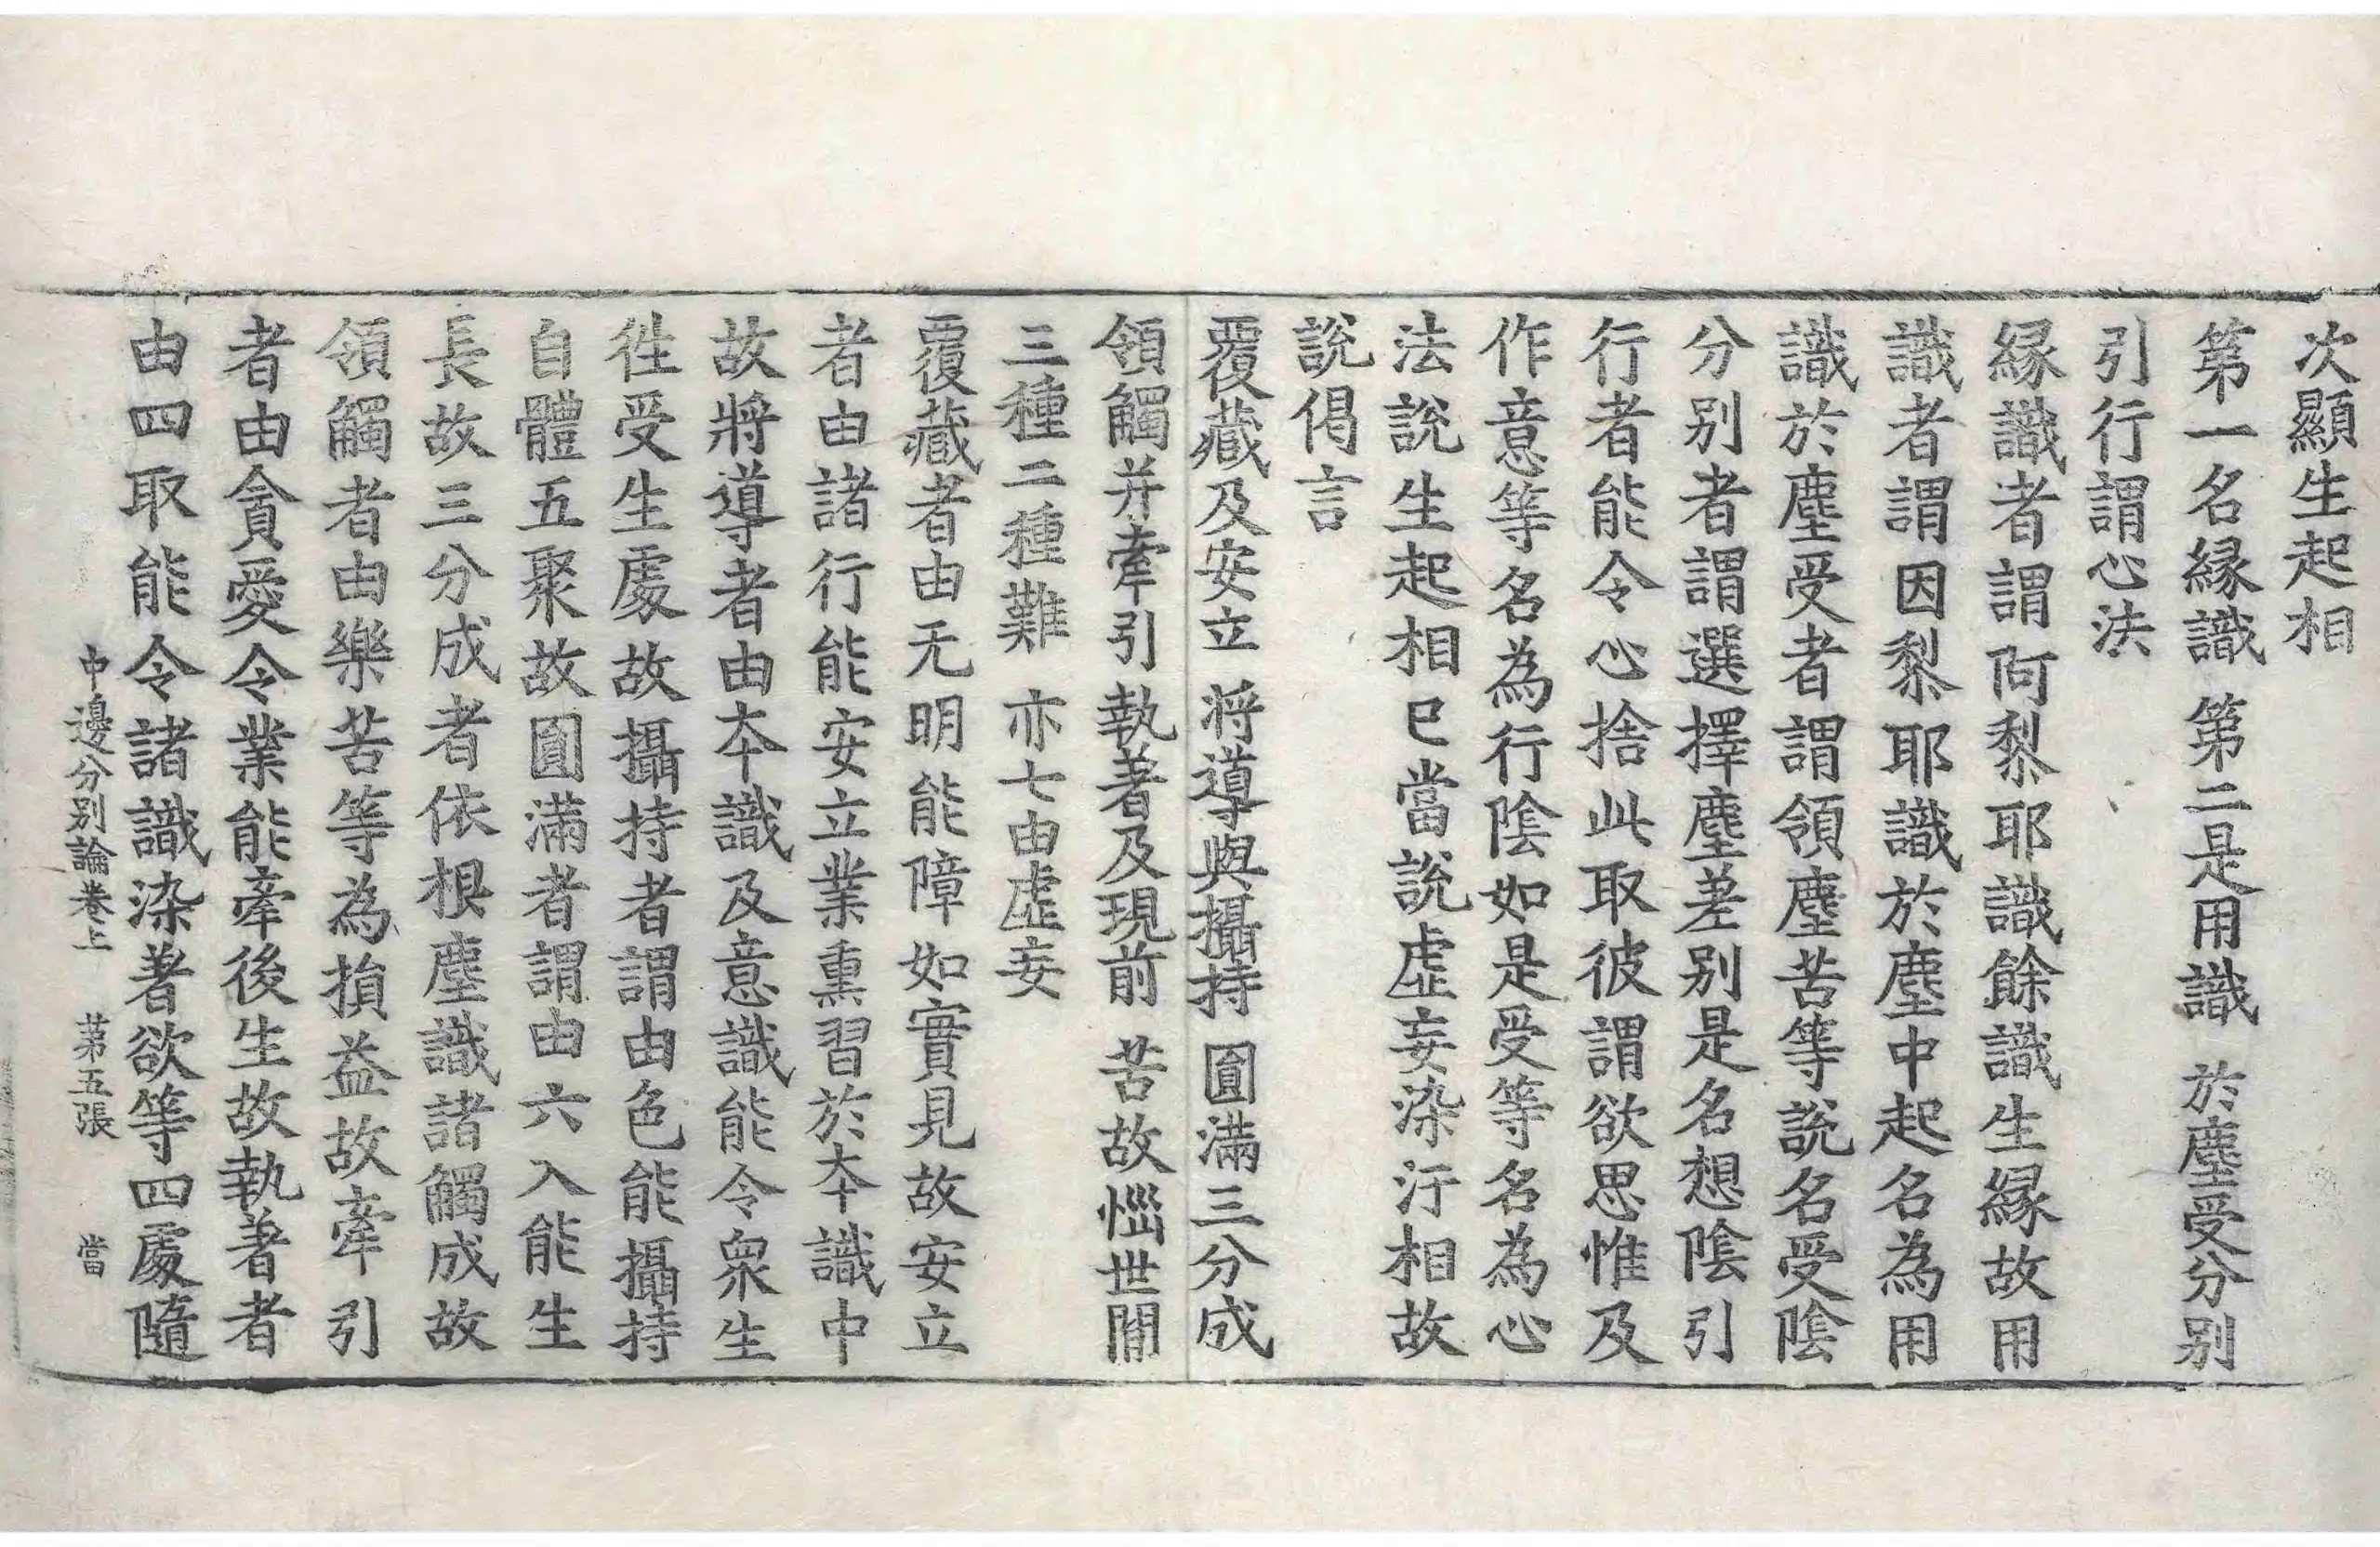 次顯生起相
第一名緣識　第二是用識　於塵受分別
引行謂心法
緣識者謂阿黎耶識餘識生緣故用
識者謂因黎耶識於塵中起名為用
識於塵受者謂領塵苦等說名受陰
分別者謂選擇塵差別是名想陰引
行者能令心捨此取彼謂欲思惟及
作意等名為行陰如是受等名為心
法說生起相已當說虛妄染汙相故
說偈言
覆藏及安立　將導與攝持　圓滿三分成
領觸并牽引　執著及現前　苦故惱世間
三種二種難　亦七由虛妄
覆藏者由无明能障如實見故安立
者由諸行能安立業熏習於本識中
故將導者由本識及意識能令衆生
徃受生處故攝持者謂由色能攝持
自體五聚故圓滿者謂由六入能生
長故三分成者依根塵識諸觸成故
領觸者由樂苦等為損益故牽引
者由貪愛令業能牽後生故執著者
由四取能令諸識染著欲等四處隨
中邊分別論卷上　第五張　當